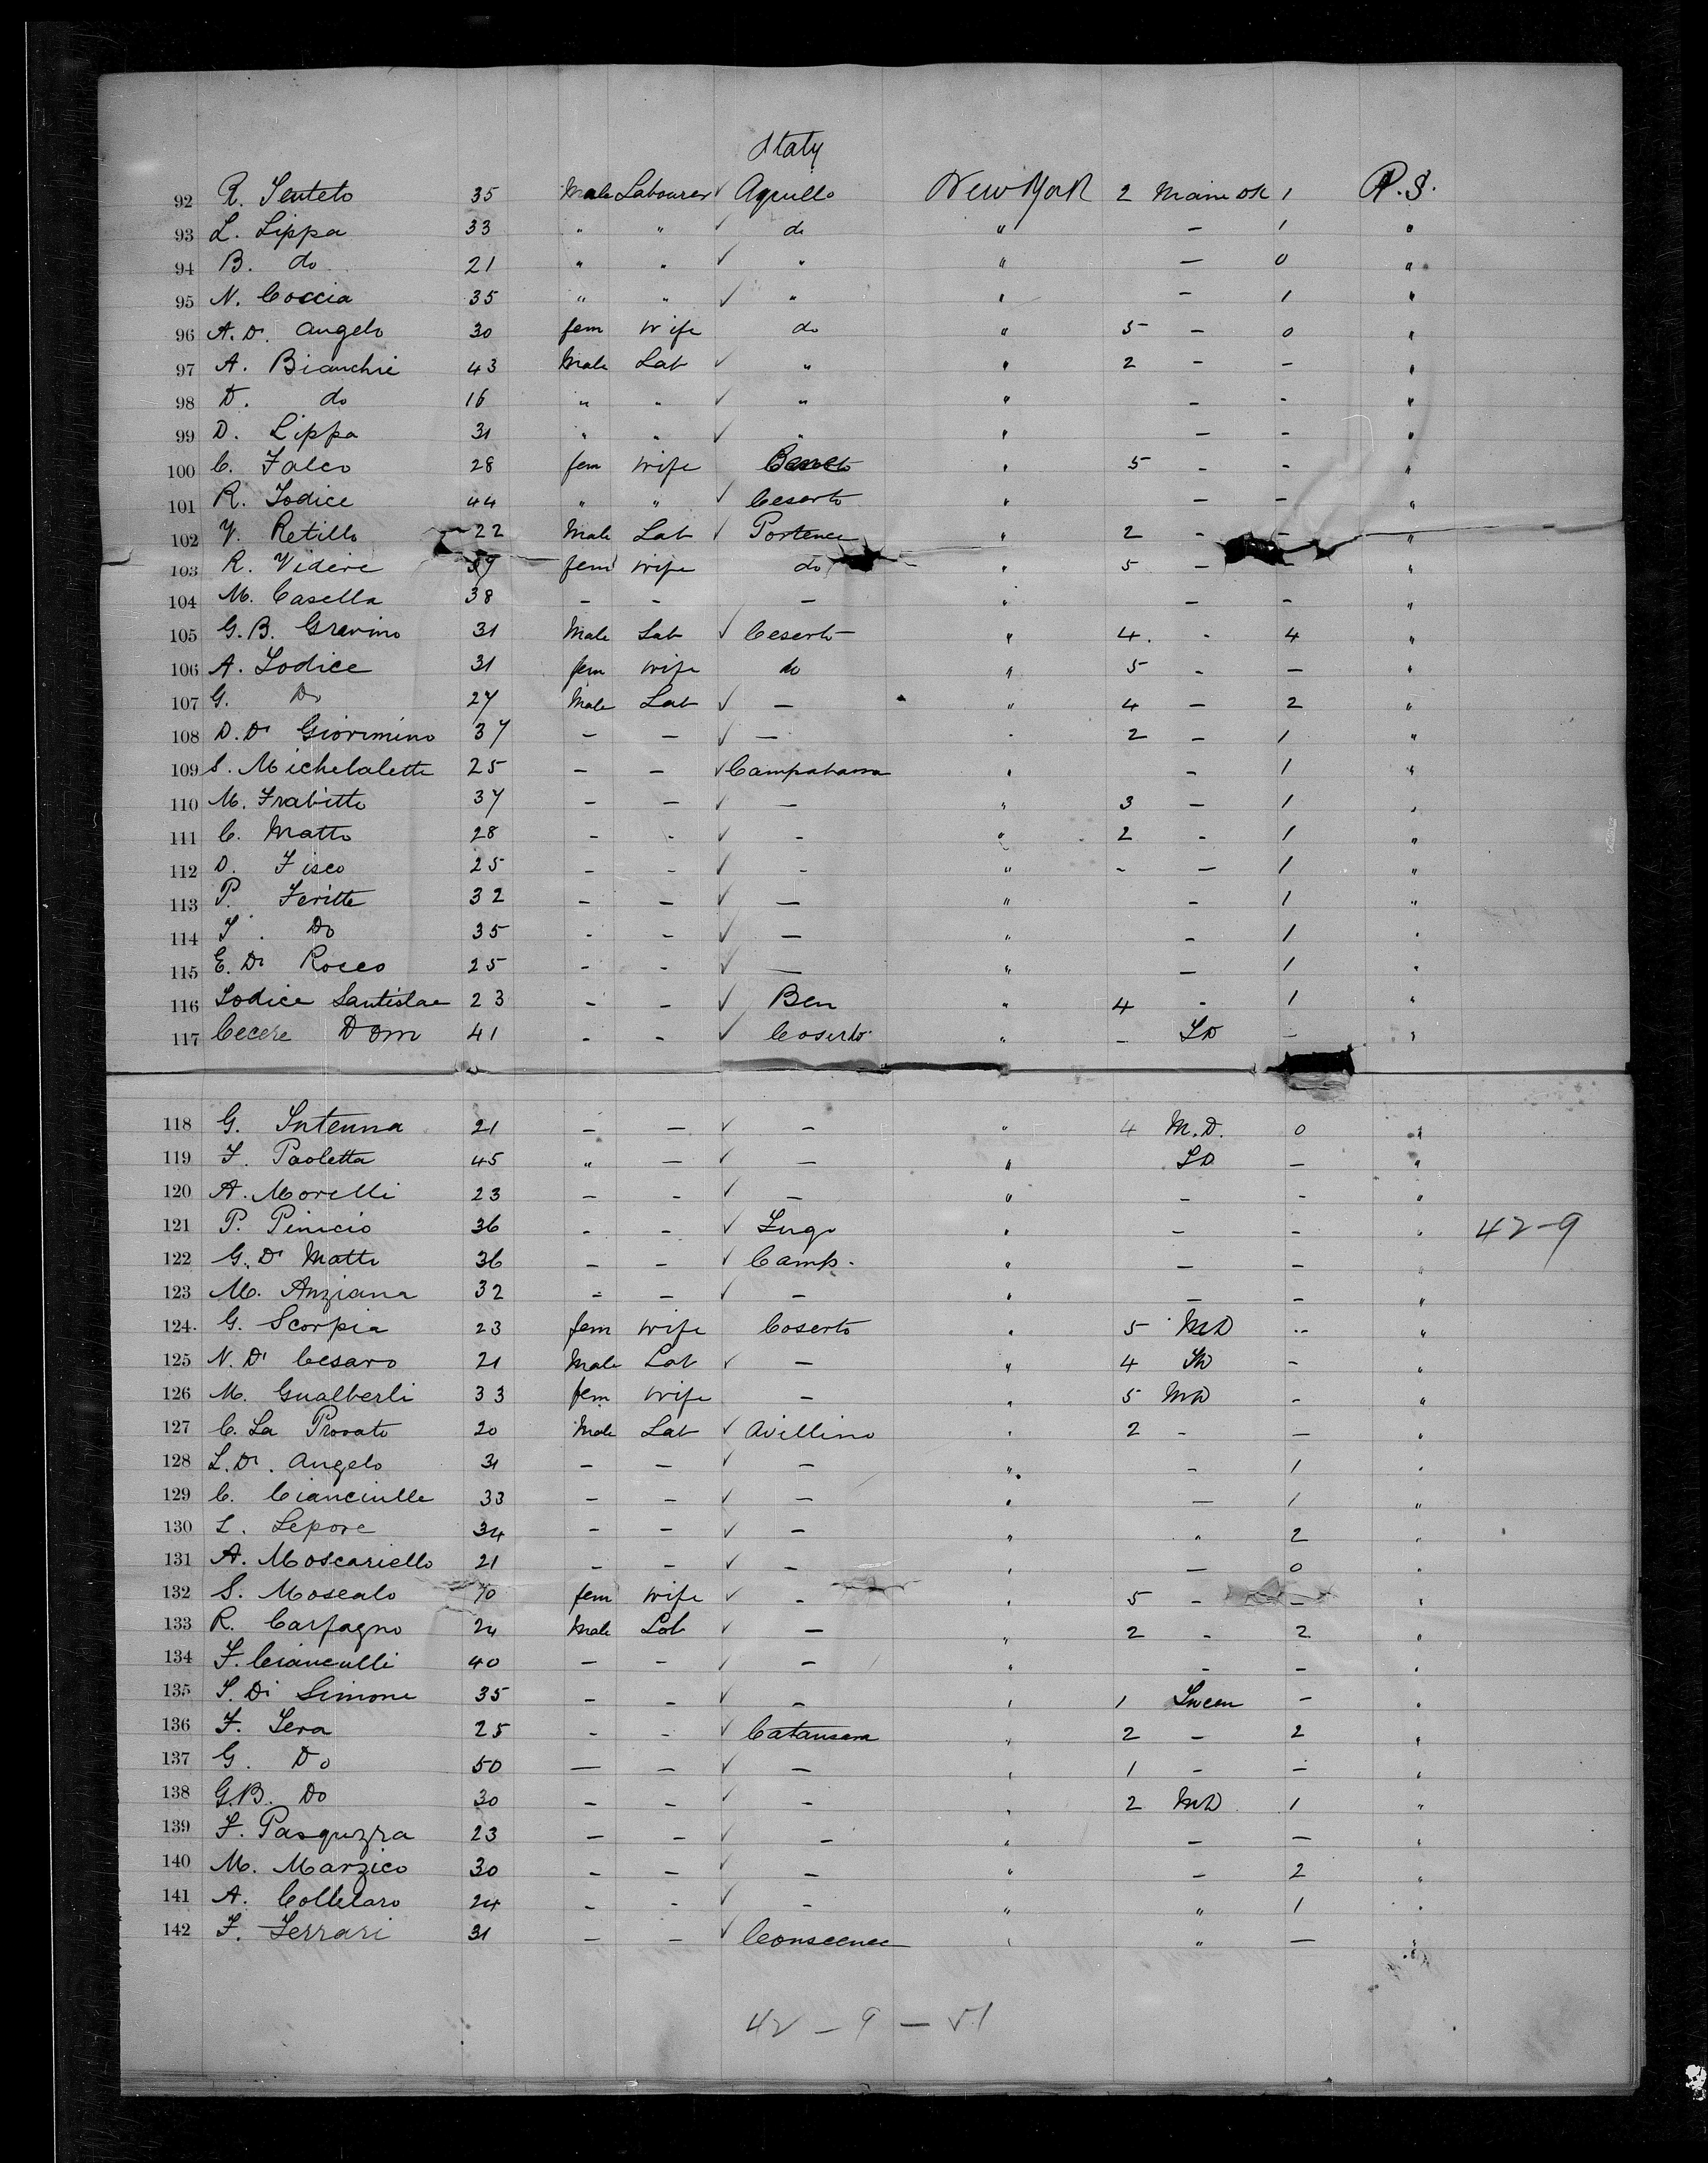 Italy
92 R. Senteto 35 Male Labourer ✓ Aquillo New York 2 Main DK 1 P.S.
93 L. Lippa 33 " " ✓ do " — 1 "
94 B. do 21 " " ✓ " " — 0 "
95 N. Coccia 35 " " ✓ " " — 1 "
96 A. Di Angelo 30 fem Wife do " 5 — 0 "
97 A. Bianchi 43 Male Lab ✓ " " 2 — — "
98 D. do 16 " " ✓ " " — — "
99 D. Lippa 31 " " ✓ " " — — "
100 C. Falco 28 fem Wife " 5 — — "
101 R. Iodice 44 " " ✓ Ceserto " — — "
102 V. Retillo 22 Male Lab ✓ Portence " 2 — — "
103 R. Videre 39 fem Wife do " 5 — — "
104 M. Casella 38 — — — " — — "
105 G.B. Gravino 31 Male Lab ✓ Ceserto " 4 — 4 "
106 A. Iodice 31 fem Wife do " 5 — — "
107 G. Do 27 Male Lab ✓ — " 4 — 2 "
108 D. Di Giorimino 37 — — ✓ — " 2 — 1 "
109 S. Michelalette 25 — — ✓ Campabassa " — 1 "
110 M. Frabitto 37 — — ✓ — " 3 — 1 "
111 C. Matto 28 — — ✓ — " 2 — 1 "
112 D. Fisco 25 — — ✓ — " — — 1 "
113 P. Feritte 32 — — ✓ — " — 1 "
114 Do 35 — — ✓ — " — 1 "
115 E. Di Rocco 25 — — ✓ — " — 1 "
116 Iodice Santislae 23 — — ✓ Ben " 4 — 1 "
117 Cecere Dom 41 — — ✓ Coserto " — LD — "
118 G. Intenna 21 — — ✓ — " 4 M.D. 0 "
119 F. Paoletta 45 " — ✓ — " LD — "
120 A. Morelli 23 — — ✓ — " — — "
121 P. Pinicio 36 — — ✓ Lugo " — — " 42-9
122 G. Di Matti 36 — — ✓ Camp. " — — "
123 M. Anziana 32 — — ✓ — " — — "
124. G. Scorpia 23 fem Wife Coserto " 5 MD — "
125 N. Di Cesaro 21 Male Lab ✓ — " 4 — "
126 M. Gualberli 33 fem Wife — " 5 MD — "
127 C. La Provato 20 Male Lab ✓ Avillino " 2 — — "
128 L. Di. Angelo 31 — — ✓ — " — 1 "
129 C. Cianciulle 33 — — ✓ — " — 1 "
130 L. Lepore 34 — — ✓ — " " 2 "
131 A. Moscariello 21 — — ✓ — " — 0 "
132 S. Moscalo 70 fem Wife ✓ — " 5 — — "
133 R. Carfagno 24 Male Lab ✓ — " 2 — 2 "
134 F. Cianculli 40 — — ✓ — " — — "
135 S. Di Simone 35 — — ✓ — " 1 — "
136 F. Sera 25 — — ✓ Catansara " 2 — 2 "
137 G. Do 50 — — ✓ — " 1 — — "
138 G.B. Do 30 — — ✓ — " 2 MD 1 "
139 F. Pasquzra 23 — — ✓ — " — — "
140 M. Marzico 30 — — ✓ — " — 2 "
141 A. Colletaro 24 — — ✓ — " " 1 "
142 F. Ferrari 31 — — ✓ Conscence " " — "
42 — 9 — 51